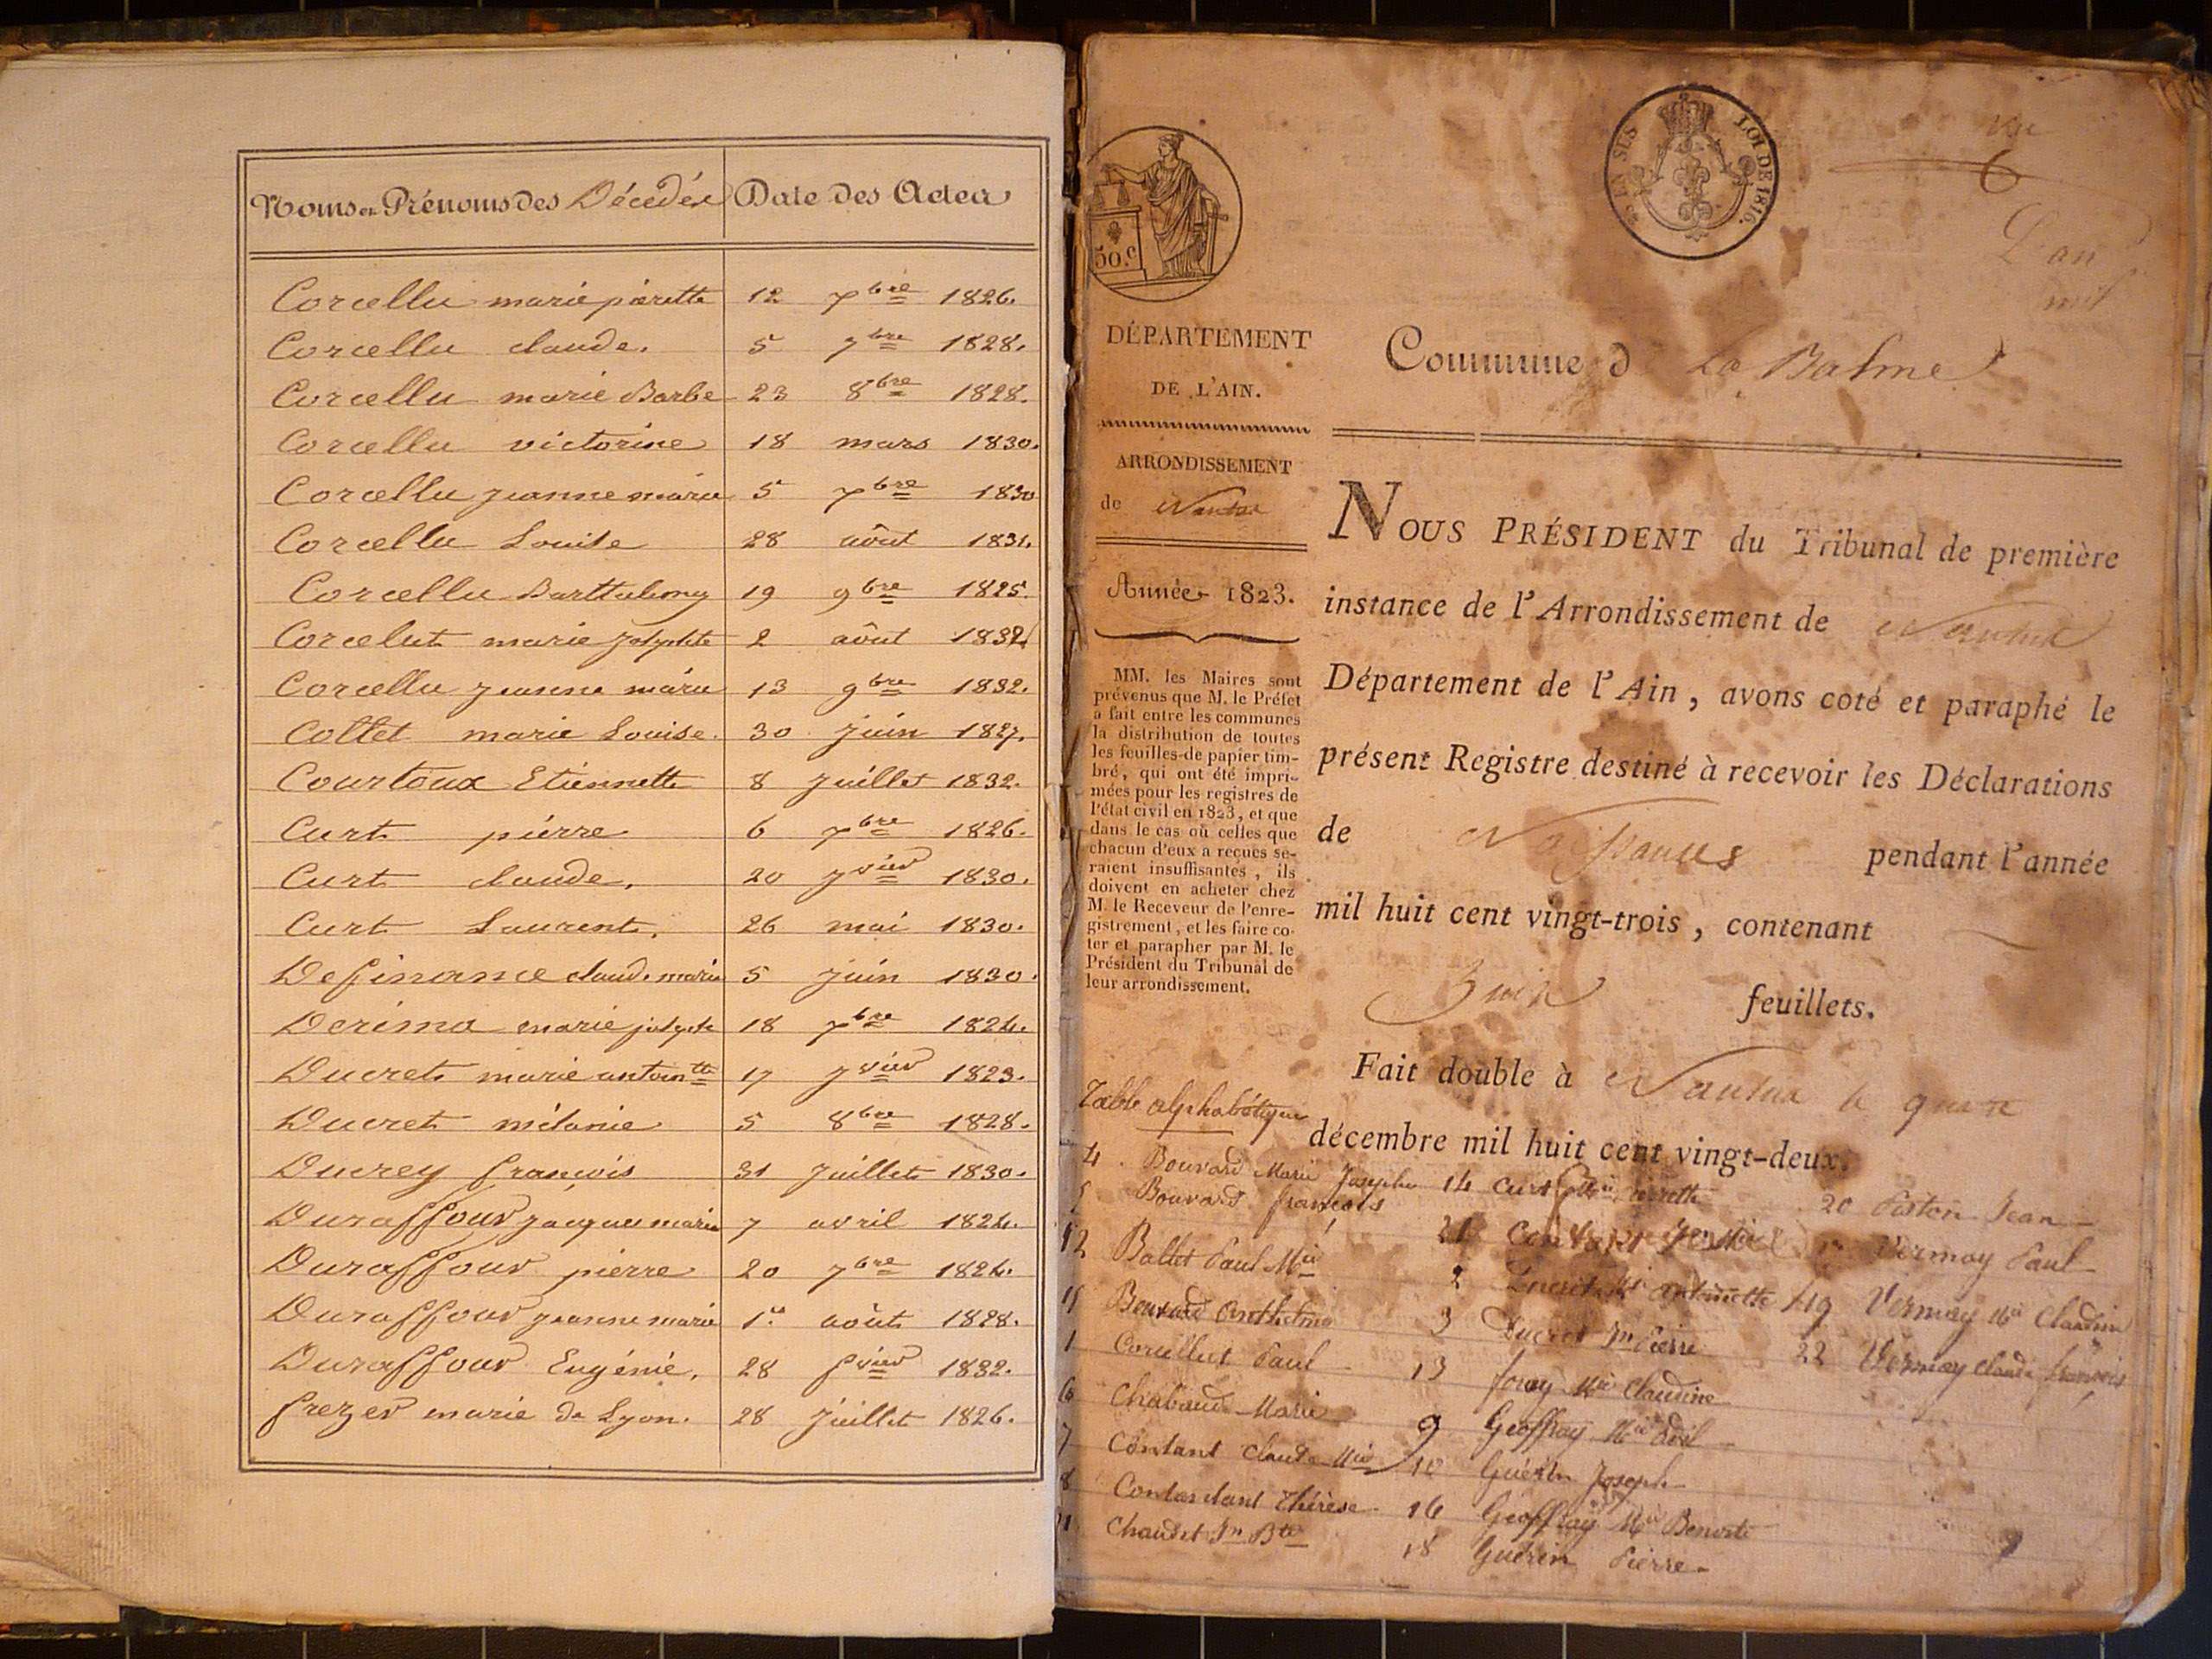 Noms et Prénoms des Décédés Date des Actes
Corcellu marie pierette 12 7bre 1826.
Corcellu claude. 5 7bre 1828.
Corcellu marie Barbe 23 8bre 1828.
Corcellu victorine 18 mars 1830.
Corcellu jeanne marie 5 7bre 1830
Corcellu Louise 28 août 1831.
Corcellu 19 9bre 1825.
Corcelut marie josephte 2 août 1832
Corcellu jeanne marie 13 9bre 1832.
Collet marie Louise. 30 juin 1827.
Courtoux Etiennette 8 juillet 1832.
Curt pierre 6 7bre 1826.
Curt claude. 20 jvier 1830.
Curt Laurent. 26 mai 1830.
Definance claude marie 5 juin 1830.
Derima marie josephte 18 7bre 1824.
Ducret marie antointte 17 jvier 1823.
Ducret mélanie 5 8bre 1828.
Ducrey françois 31 juillet 1830.
Duraffour jacques marie 7 avril 1824.
Duraffour pierre 20 7bre 1824.
Duraffour jeanne marie 1er août 1828.
Duraffour Eugénie. 28 fvier 1832.
frezer marie de Lyon. 28 juillet 1826.
50.c
LOI DE 1816.
6
L'an
mil
DÉPARTEMENT
DE L'AIN.
ARRONDISSEMENT
de Nantua
Année 1823.
MM. les Maires sont
prévenus que M. le Préfet
a fait entre les communes
la distribution de toutes
les feuilles de papier tim-
bré, qui ont été impri-
mées pour les registres de
l'état civil en 1823, et que
dans le cas où celles que
chacun d'eux a reçues se-
raient insuffisantes, ils
doivent en acheter chez
M. le Receveur de l'enre-
gistrement, et les faire co-
ter et parapher par M. le
Président du Tribunal de
leur arrondissement.
Commune d La Balme
NOUS PRÉSIDENT du Tribunal de première
instance de l'Arrondissement de Nantua
Département de l'Ain, avons coté et paraphé le
présent Registre destiné à recevoir les Déclarations
de Naissances pendant l'année
mil huit cent vingt-trois, contenant
feuillets.
Fait double à Nantua le
décembre mil huit cent vingt-deux.
Table alphabétique
4. Bouvard Marie Josephe
Bouvard françois
12 Ballet Paul Mie
Bouvard Anthelme
1 Corcellut Paul
6 Chabaud Marie
7 Contant Claude Mie
8 Thérèse
Chaudet Jn Bte
14 Curt
21
2 Ducret Mie antoinette
3 Ducret Jn Pierre
13 Mie Claudine
9 Geoffray Mie
10 Guérin Joseph
16 Geoffray Mie Benoite
18 Guérin Pierre
20 Piston Jean
Vernay Paul
19 Vernay Mie Claudine
22 Vernay Claude françois